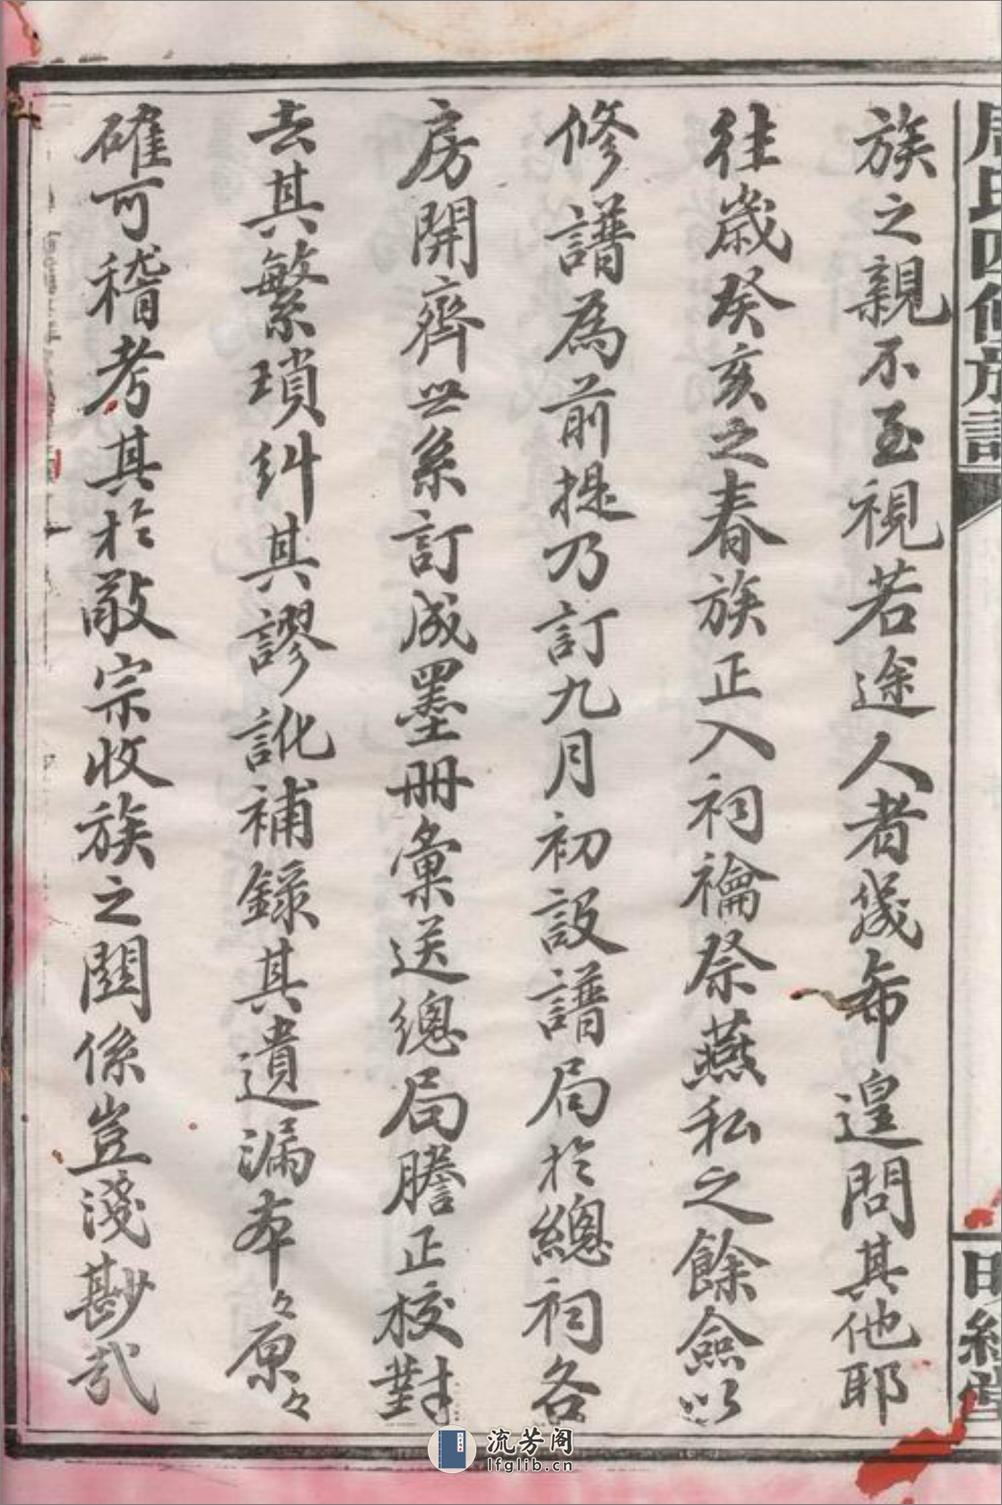 周氏四修族譜
明經堂
族之親不至視若途人者幾希遑問其他耶
往歲癸亥之春族正入祠禴祭燕私之餘僉以
修譜為前提乃訂九月初設譜局於總祠各
房開齊世系訂成墨冊彙送總局謄正校對
去其繁瑣糾其謬訛補錄其遺漏本々原々
確可稽考其於敬宗收族之關係豈淺尠哉
流芳阁
lfglib.cn